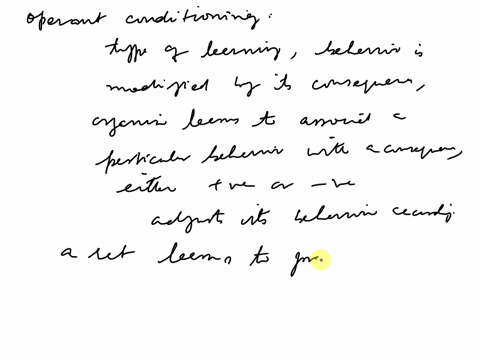 operant conditioning:
type of learning, behavior is
modified by its consequences,
organism learns to associate a
particular behavior with a consequence,
either +ve or -ve
adjusts its behavior
a rat learns to